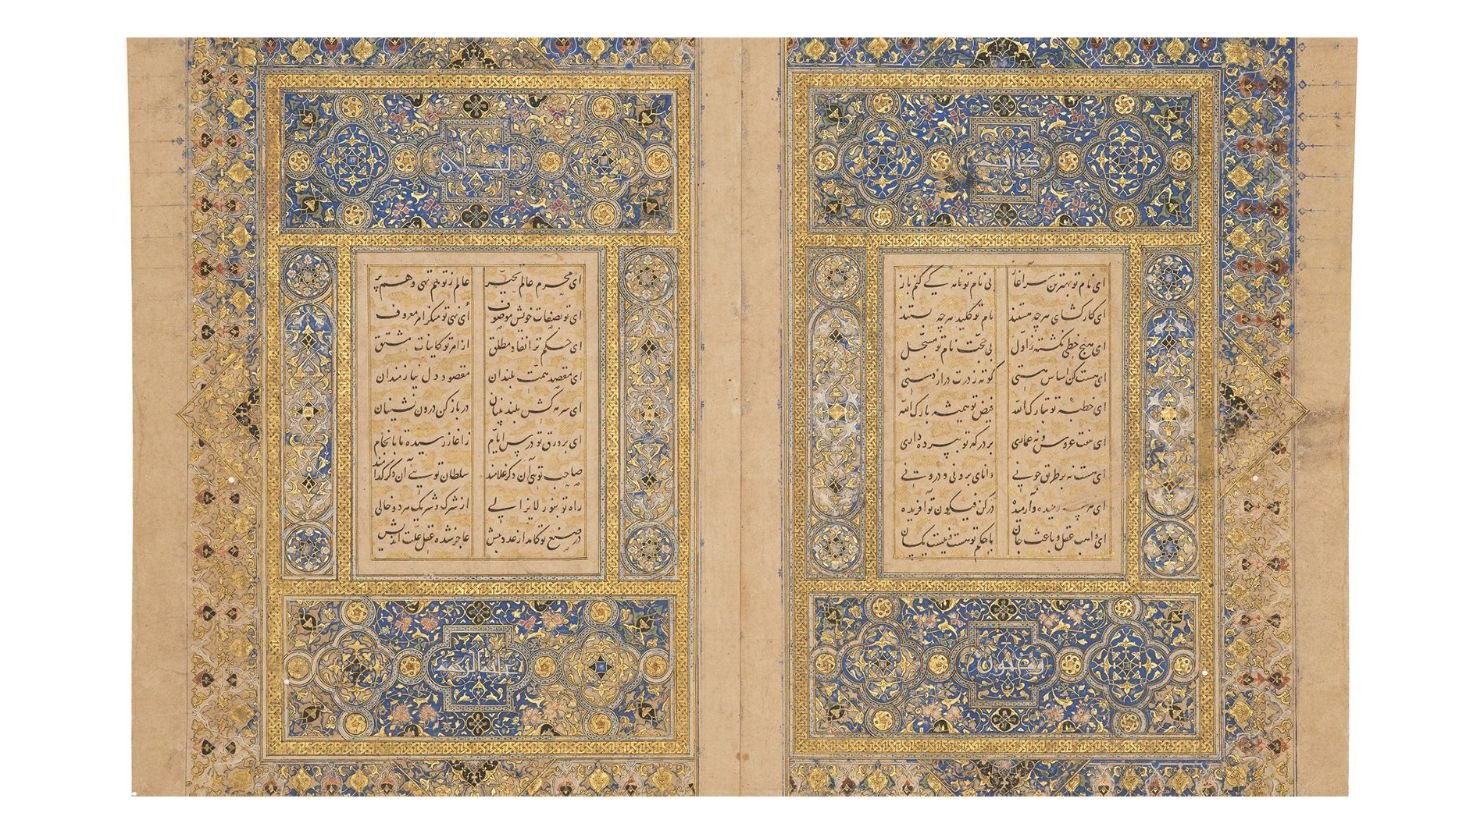 ای نام تو بهترین سرآغاز بی نام تو نامه کی کنم باز
ای کارگشای هرچه هستند نام تو کلید هرچه بستند
ای هیچ خطی نگشته ز اول بی حجت نام تو مسجل
ای هست کن اساس هستی کوته ز درت درازدستی
ای خطبه تو تبارک الله فیض تو همیشه بارک الله
ای هفت عروس نه عماری بر درگه تو به پرده داری
ای هست نه بر طریق چونی دانای برونی و درونی
ای هرچه رمیده وآرمیده در کن فیکون تو آفریده
ای واهب عقل و باعث جان با حکم تو هست و نیست یکسان
ومجنون
ای محرم عالم تحیر عالم ز تو هم تهی و هم پر
ای تو بصفات خویش موصوف ای نهی تو منکر امر معروف
ای حکم ترا نفاد مطلق از امر تو کاینات مشتق
ای مقصد همت بلندان مقصود دل نیازمندان
ای سرمه کش بلند بینان در باز کن درون نشینان
ای بر ورق تو درس ایام ز آغاز رسیده تا بانجام
صاحب تویی آن دگر غلامند سلطان تویی آن دگر کدامند
راه تو بنور لایزالی از شرک و شریک هر دو خالی
در صنع تو کامد از عدد بیش عاجز شده عقل علت اندیش